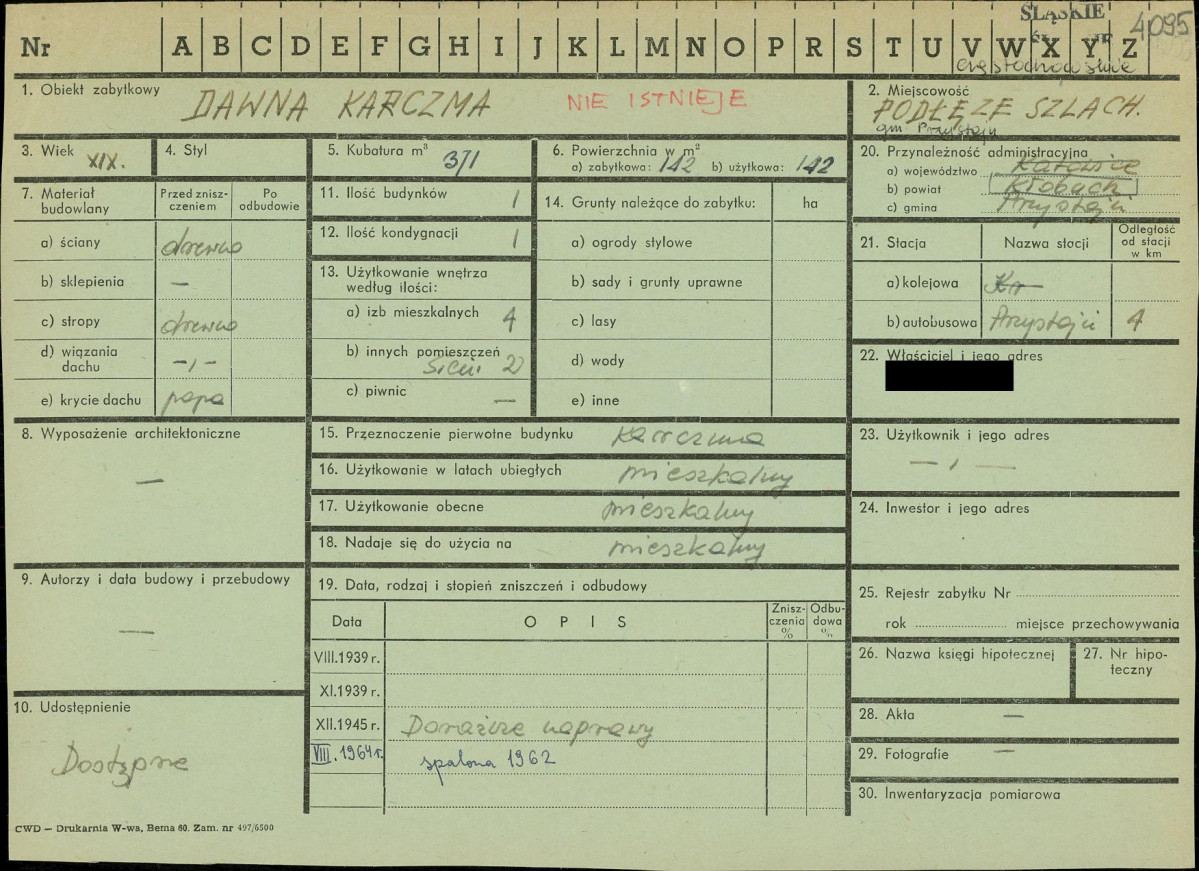 ŚLĄSKIE
4095
Nr A B C D E F G H I J K L M N O P R S T U V W X Y Z
częstochowskie
1. Obiekt zabytkowy
DAWNA KARCZMA NIE ISTNIEJE
2. Miejscowość
PODŁĘŻE SZLACH.
gm Przystajń
3. Wiek XIX.
4. Styl
5. Kubatura m³ 371
6. Powierzchnia w m²
a) zabytkowa: 142 b) użytkowa: 142
20. Przynależność administracyjna
a) województwo Katowice
b) powiat Kłobuck
c) gmina Przystajń
7. Materiał budowlany
Przed zniszczeniem
Po odbudowie
a) ściany drewno
b) sklepienia —
c) stropy drewno
d) wiązania dachu —„—
e) krycie dachu papa
11. Ilość budynków 1
12. Ilość kondygnacji 1
13. Użytkowanie wnętrza
według ilości:
a) izb mieszkalnych 4
b) innych pomieszczeń
sieni 2
c) piwnic —
14. Grunty należące do zabytku: ha
a) ogrody stylowe
b) sady i grunty uprawne
c) lasy
d) wody
e) inne
21. Stacja Nazwa stacji Odległość od stacji w km
a) kolejowa
b) autobusowa Przystajń 4
22. Właściciel i jego adres
8. Wyposażenie architektoniczne
—
15. Przeznaczenie pierwotne budynku karczma
16. Użytkowanie w latach ubiegłych mieszkalny
17. Użytkowanie obecne mieszkalny
18. Nadaje się do użycia na mieszkalny
23. Użytkownik i jego adres
— „ —
24. Inwestor i jego adres
9. Autorzy i data budowy i przebudowy
—
19. Data, rodzaj i stopień zniszczeń i odbudowy
Data OPIS Zniszczenia % Odbudowa %
VIII.1939 r.
XI.1939 r.
XII.1945 r. Doraźne naprawy
VIII.1964 r. spalona 1962
25. Rejestr zabytku Nr
rok miejsce przechowywania
26. Nazwa księgi hipotecznej
27. Nr hipoteczny
28. Akta —
29. Fotografie —
30. Inwentaryzacja pomiarowa
10. Udostępnienie
Dostępne
CWD — Drukarnia W-wa, Bema 60. Zam. nr 497/6500